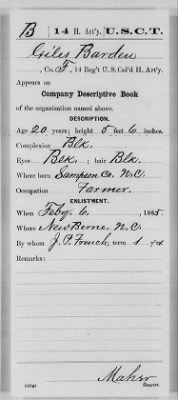 B 14 H. Art'y. U.S.C.T.
Giles Barden
, Co. F, 14 Reg't U. S. Col'd H. Art'y.
Appears on
Company Descriptive Book
of the organization named above.
DESCRIPTION.
Age 20 years; height 5 feet 6 inches.
Complexion Blk.
Eyes Blk. ; hair Blk.
Where born Sampson Co. N.C.
Occupation Farmer.
ENLISTMENT.
When Feby. 6 , 1865.
Where New Berne, N.C.
By whom J. P. ; term 1 y'rs
Remarks:
Maher
Copyist.